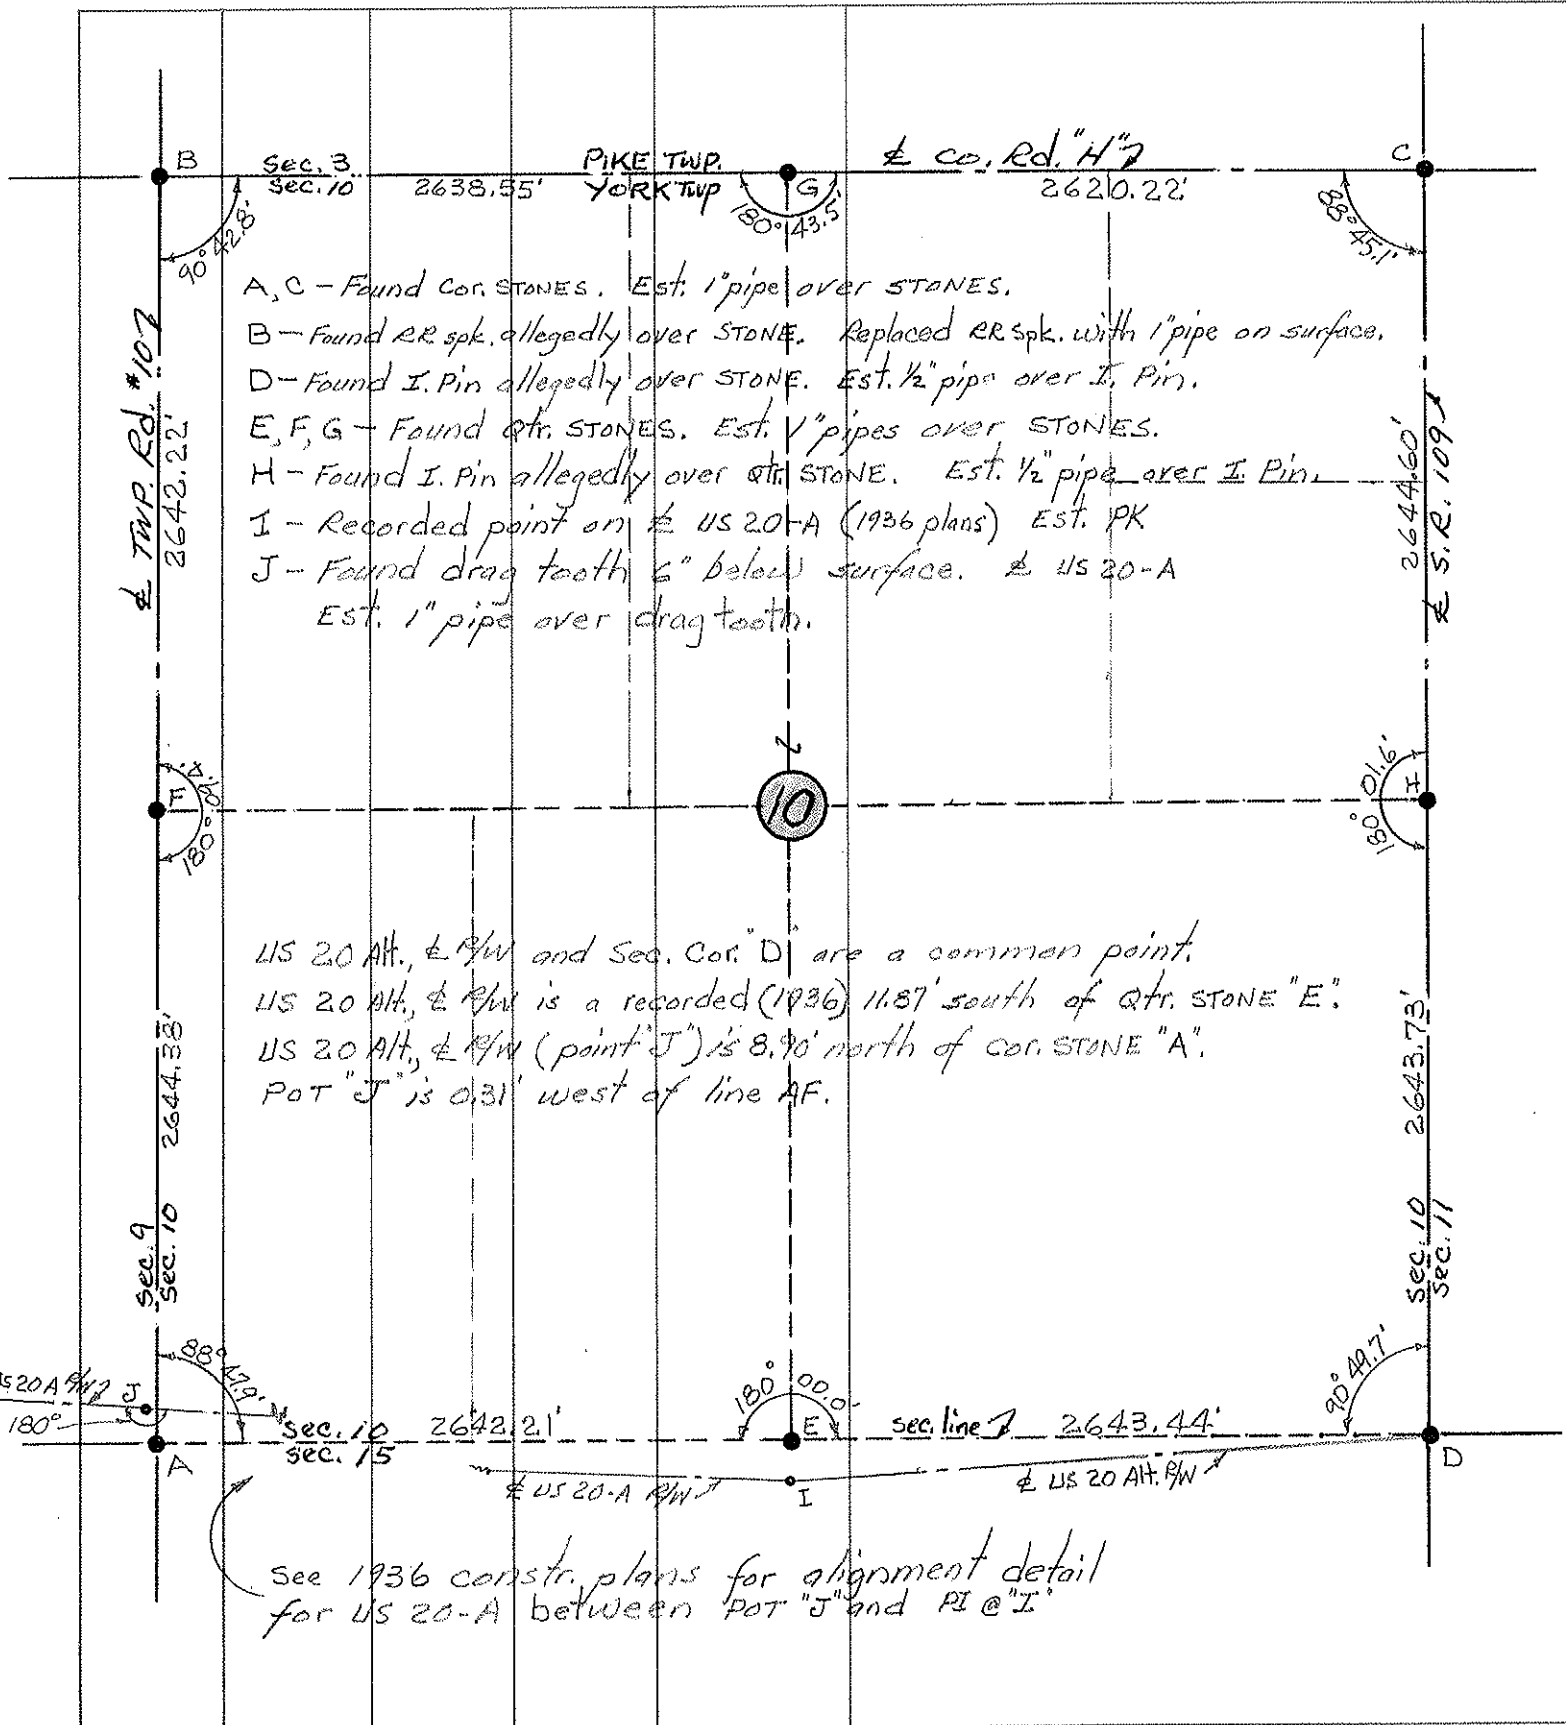 B
Sec. 3
Sec. 10
2638.55'
PIKE TWP.
YORK TWP
G
180° 43.5'
℄ Co. Rd. "H"
2620.22'
C
90° 42.8'
88° 45.1'
A, C - Found Cor. STONES. Est. 1" pipe over STONES.
B - Found RR spk. allegedly over STONE. Replaced RR spk. with 1" pipe on surface.
D - Found I. Pin allegedly over STONE. Est. 1/2" pipe over I. Pin.
E, F, G - Found Qtr. STONES. Est. 1" pipes over STONES.
H - Found I. Pin allegedly over Qtr. STONE. Est. 1/2" pipe over I. Pin.
I - Recorded point on ℄ US 20-A (1936 plans) Est. PK
J - Found drag tooth 6" below surface. ℄ US 20-A
Est. 1" pipe over drag tooth.
℄ TWP. Rd. #107
2642.22'
2644.60'
℄ S.R. 109
F
180°
10
H
180° 01.6'
US 20 Alt., ℄ R/W and Sec. Cor. "D" are a common point.
US 20 Alt., ℄ R/W is a recorded (1936) 11.87' south of Qtr. STONE "E".
US 20 Alt., ℄ R/W (point "J") is 8.90' north of cor. STONE "A".
POT "J" is 0.31' west of line AF.
2644.38'
2643.73'
Sec. 9
Sec. 10
Sec. 10
Sec. 11
88° 47.9'
US 20 A R/W
J
180°
A
Sec. 10
Sec. 15
2642.21'
180° 00.0'
E
sec. line
2643.44'
90° 49.7'
D
℄ US 20-A R/W
I
℄ US 20 Alt. R/W
See 1936 constr. plans for alignment detail
for US 20-A between POT "J" and PI @ "I"